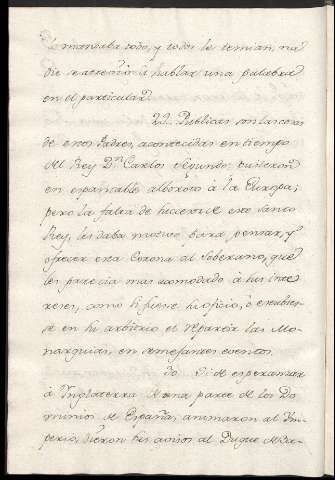 lo mandaba todo, y todos le temian, na
die se atrevio à hablar una palabra
en el particular.
22. Publicas son las cosas
de estos Padres, acontecidas en tiempo
del Rey Dn. Carlos Segundo: pusieron
en espantable alboroto à la Europa;
pero la falta de heredero de este Santo
Rey, les daba motivo para pensar, y
ofrecer esta Corona al Soberano, que
les parecia mas acomodado à sus inte
reses, como si fuese su oficio, ò estubie
se en su arbitrio el repartir las Mo-
narquias, en semejantes eventos.
à Inglaterra una parte de los Do
minios de España, animaron al Im
perio, dieron sus avisos al Duque de